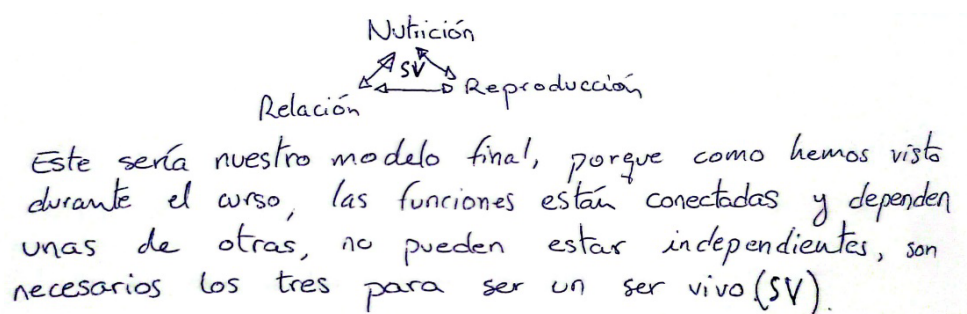 Nutrición
SV
Relación
Reproducción
Este sería nuestro modelo final, porque como hemos visto
durante el curso, las funciones están conectadas y dependen
unas de otras, no pueden estar independientes, son
necesarios los tres para ser un ser vivo (SV).